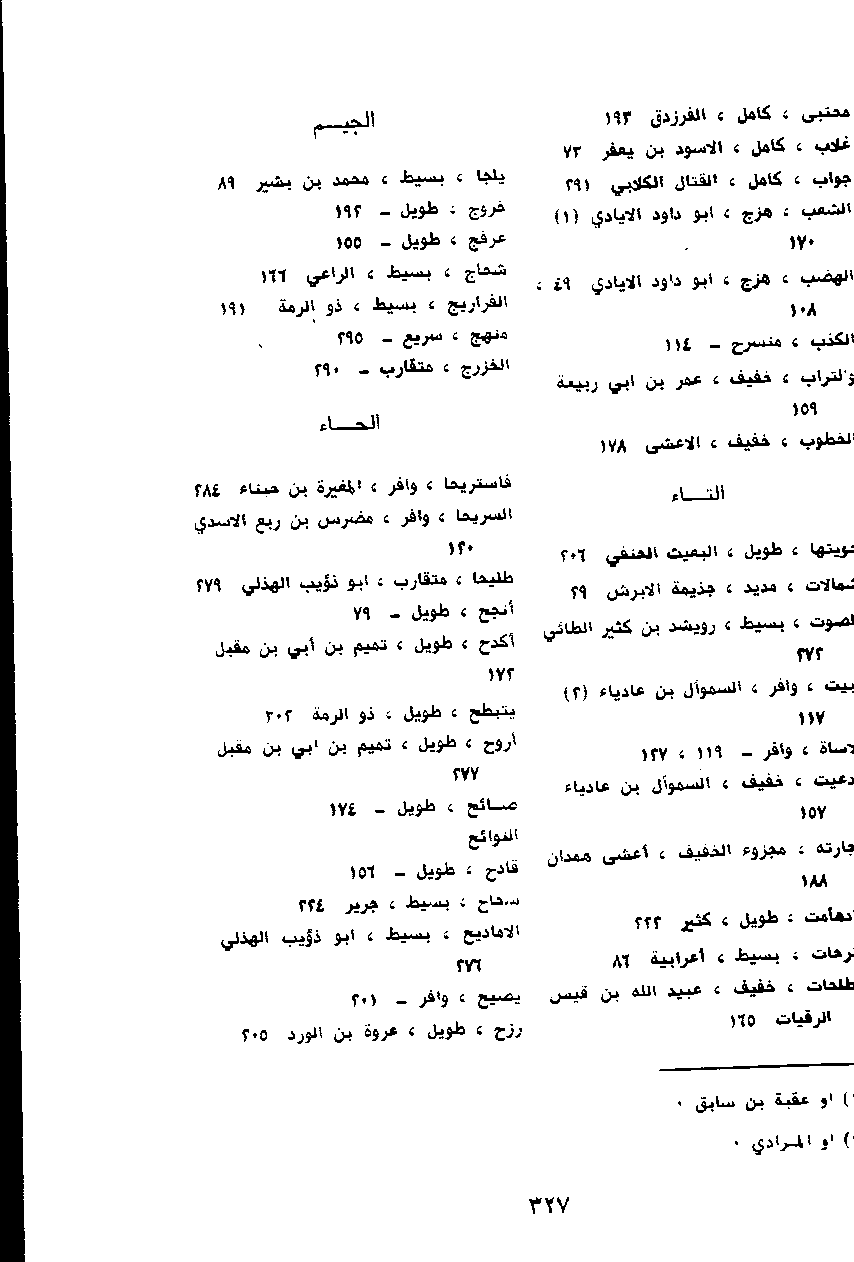 مجتبى ، كامل ، الفرزدق ١٩٣
غلاب ، كامل ، الاسود بن يعفر ٧٣
جواب ، كامل ، القتال الكلابي ٢٩١
الشعب ، هزج ، ابو داود الايادي (١)
١٧٠
الهضب ، هزج ، ابو داود الايادي ٤٩ ،
١٠٨
الكذب ، منسرح ـ ١١٤
والتراب ، خفيف ، عمر بن ابي ربيعة
١٥٩
الخطوب ، خفيف ، الاعشى ١٧٨
التــاء
، طويل ، البعيث الحنفي ٢٠٦
شمالات ، مديد ، جذيمة الابرش ٢٩
الصوت ، بسيط ، رويشد بن كثير الطائي
٢٧٢
بيت ، وافر ، السموأل بن عادياء (٢)
١١٧
، وافر ـ ١١٩ ، ١٢٧
دعيت ، خفيف ، السموأل بن عادياء
١٥٧
جارته ، مجزوء الخفيف ، أعشى همدان
١٨٨
، طويل ، كثير ٢٢٢
، بسيط ، أعرابية ٨٦
طلحات ، خفيف ، عبيد الله بن قيس
الرقيات ١٦٥
) او عقبة بن سابق ٠
) او المرادي ٠
الجيــم
يلجا ، بسيط ، محمد بن بشير ٨٩
فروج ، طويل ـ ١٩٢
عرفج ، طويل ـ ١٥٥
شحاج ، بسيط ، الراعي ١٦٦
الفراريج ، بسيط ، ذو الرمة ١٩١
منهج ، سريع ـ ٢٩٥
الخزرج ، متقارب ـ ٢٩٠
الحــاء
فاستريحا ، وافر ، المغيرة بن حبناء ٢٨٤
السريحا ، وافر ، مضرس بن ربع الاسدي
١٢٠
طليحا ، متقارب ، ابو ذؤيب الهذلي ٢٧٩
أنجح ، طويل ـ ٧٩
أكدح ، طويل ، تميم بن أبي بن مقبل
١٧٢
يتبطح ، طويل ، ذو الرمة ٢٠٢
أروح ، طويل ، تميم بن ابي بن مقبل
٢٧٧
صــائح ، طويل ـ ١٧٤
النوائح
قادح ، طويل ـ ١٥٦
، بسيط ، جرير ٢٢٤
الاماديح ، بسيط ، ابو ذؤيب الهذلي
٢٧٦
يصيح ، وافر ـ ٢٠١
رزح ، طويل ، عروة بن الورد ٢٠٥
٣٢٧